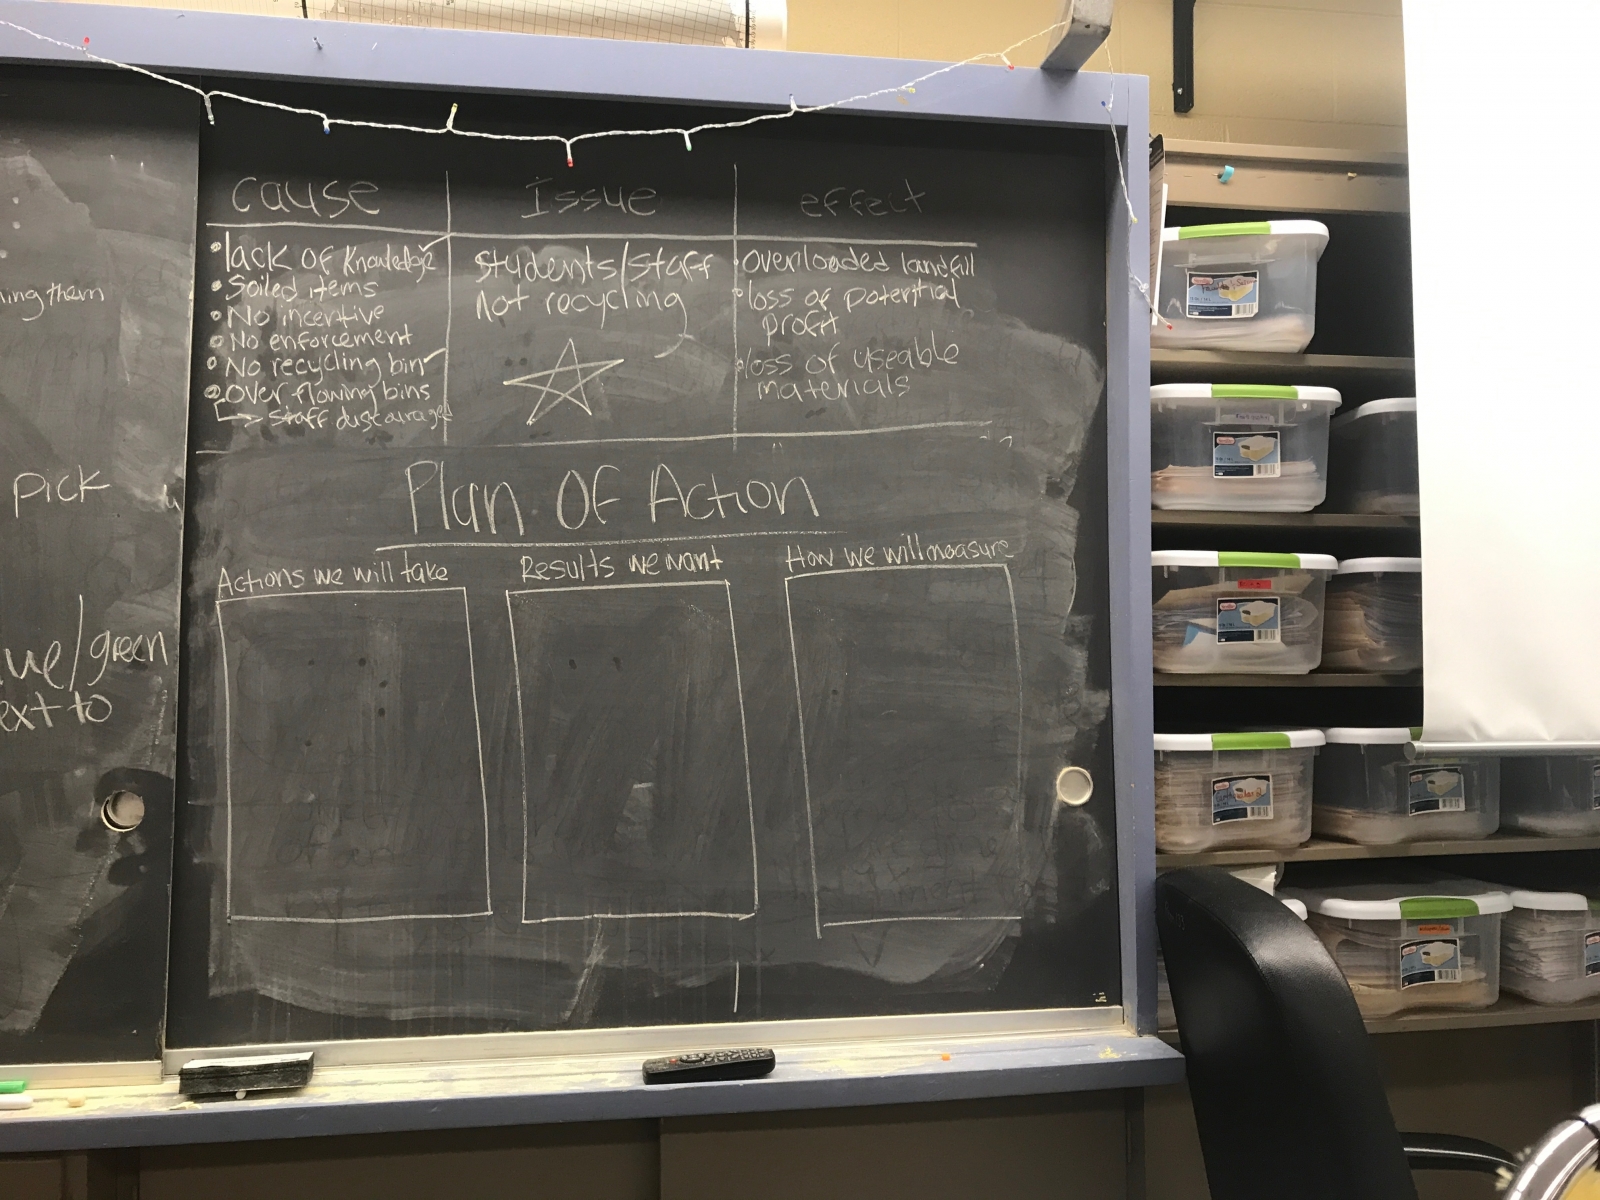 ning them
Pick
ue/green
ext to
cause
Issue
effect
• lack of Knowledge
• Soiled items
• No incentive
• No enforcement
• No recycling bin
• Overflowing bins
→ Staff discouraged
Students/Staff
Not recycling
• Overloaded landfill
• loss of potential
profit
• loss of useable
materials
Plan Of Action
Actions we will take
Results we want
How we will measure